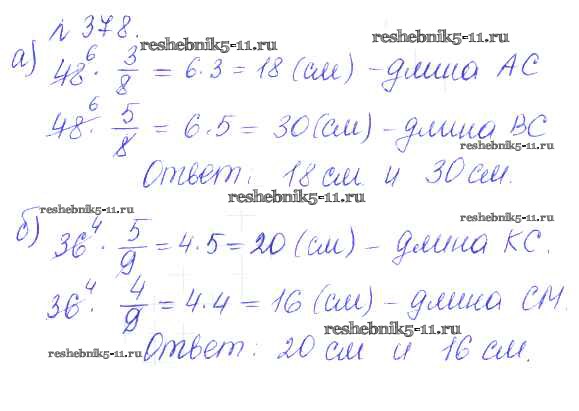 № 378.
reshebnik5-11.ru
reshebnik5-11.ru
а) 48⁶ · 3/8 = 6·3 = 18 (см) – длина АС
48⁶ · 5/8 = 6·5 = 30 (см) – длина ВС
reshebnik5-11.ru
Ответ: 18 см и 30 см.
reshebnik5-11.ru
reshebnik5-11.ru
reshebnik5-11.ru
б) 36⁴ · 5/9 = 4·5 = 20 (см) – длина КС.
36⁴ · 4/9 = 4·4 = 16 (см) – длина СМ.
reshebnik5-11.ru
reshebnik5-11.ru
Ответ: 20 см и 16 см.